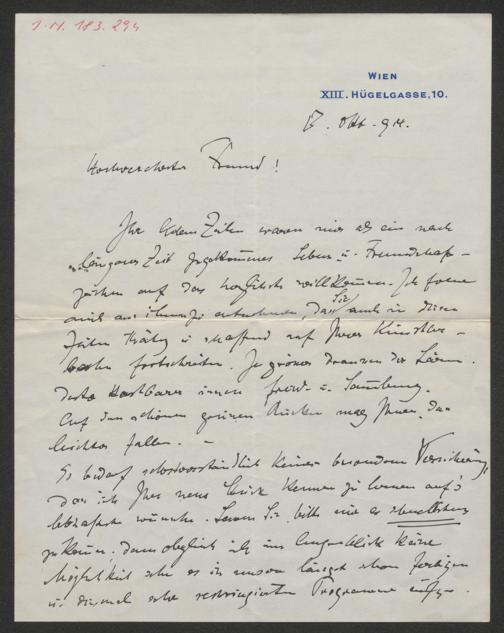 I.N. 183.294
WIEN
XIII. HÜGELGASSE, 10.
Okt. 914.
Hochverehrter Freund!
Ihre lieben Zeilen waren mir als ein nach
längerer Zeit gekommenes Lebens- u. Freundschafts-
zeichen auf das herzlichste willkommen. Ich freue
mich aus ihnen zu entnehmen, dass Sie auch in diesen
Zeiten thätig u. schaffend auf Ihrer Künstler-
bahn fortschreiten. Je grösser draussen der Lärm
desto kostbarer innen Friede u. Sammlung.
Auf dem schönen grünen mag Ihnen das
leichter fallen. –
Es bedarf selbstverständlich keiner besonderen Versicherung,
dass ich Ihr neues Werk kennen zu lernen auf's
lebhafteste wünsche. Lassen Sie bitte mir es
zukommen, denn obgleich ich im Augenblicke keine
Möglichkeit sehe es in unsere längst schon fertigen
u. diesmal sehr restringierten Programme